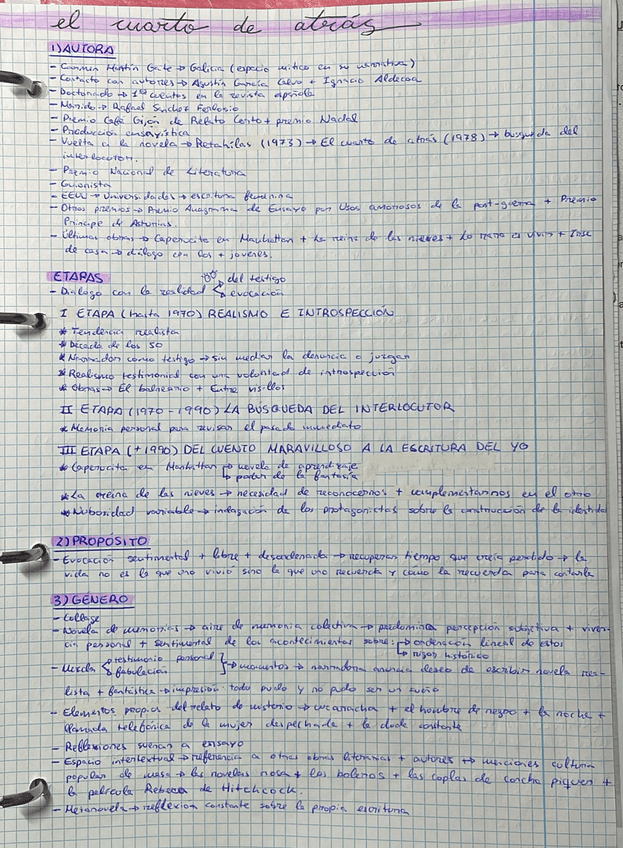 el cuarto de atrás
1) AUTORA
- Carmen Martín Gaite → Galicia (espacio mítico en su narrativa)
- Contacto con autores → Agustín García Calvo + Ignacio Aldecoa
- Doctorado → 1os cuentos en la revista española
- Marido → Rafael Sánchez Ferlosio
- Premio Café Gijón de Relato Corto + premio Nadal
- Producción ensayística
- Vuelta a la novela → Retahílas (1973) → El cuarto de atrás (1978) → búsqueda del
interlocutor.
- Premio Nacional de Literatura
- Guionista
- EEUU → Universidades → escritura femenina
- Otros premios → Premio Anagrama de Ensayo por Usos amorosos de la post-guerra + Premio
Príncipe de Asturias.
- Últimas obras → Caperucita en Manhattan + La reina de las nieves + Lo raro es vivir + Irse
de casa → diálogo con los + jóvenes.
ETAPAS
- Diálogo con la realidad del testigo
evocación
I ETAPA (hasta 1970) REALISMO E INTROSPECCIÓN
* Tendencia realista
* Década de los 50
* Narrador como testigo → sin mediar la denuncia o juzgar
* Realismo testimonial con una voluntad de introspección
* Obras → El balneario + Entre visillos
II ETAPA (1970-1990) LA BÚSQUEDA DEL INTERLOCUTOR
* Memoria personal para revisar el pasado inmediato
III ETAPA (+1990) DEL CUENTO MARAVILLOSO A LA ESCRITURA DEL YO
* Caperucita en Manhattan → novela de aprendizaje
↳ poder de la fantasía
* La reina de las nieves → necesidad de reconocernos + complementarnos en el otro
* Nubosidad variable → indagación de los protagonistas sobre la construcción de la identidad
2) PROPÓSITO
- Evocación sentimental + libre + desordenada → recuperar tiempo que creía perdido → la
vida no es la que uno vivió sino la que uno recuerda y cómo la recuerda para contarla
3) GÉNERO
- Collage
- Novela de memorias → aire de memoria colectiva → predomina percepción subjetiva + viven-
cia personal + sentimental de los acontecimientos sobre: → ordenación lineal de estos
↳ rigor histórico
- Mezcla testimonio personal
fabulación → momentos → narradora anuncia deseo de escribir novela rea-
lista + fantástica → impresión: todo pudo y no pudo ser un sueño
- Elementos propios del relato de misterio → cucaracha + el hombre de negro + la noche +
llamada telefónica de la mujer despechada + la duda constante
- Reflexiones suenan a ensayo
- Espacio intertextual → referencia a otras obras literarias + autores ↔ menciones cultura
popular de masa → las novelas rosa + los boleros + las coplas de Concha Piquer +
la película Rebeca de Hitchcock.
- Metanovela → reflexión constante sobre la propia escritura